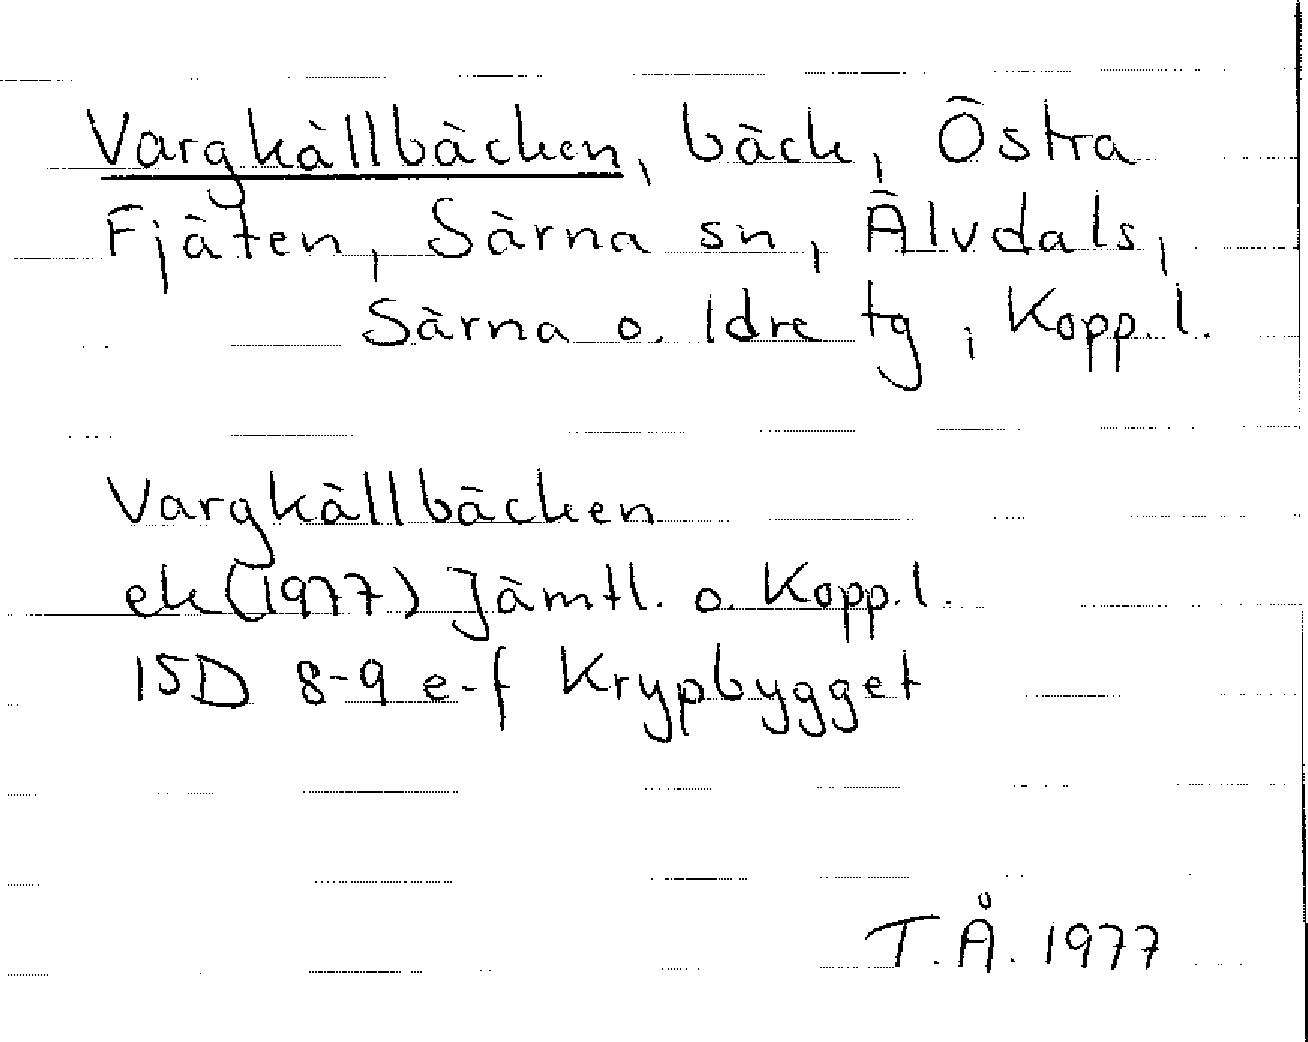 Vargkällbäcken, bäck, Östra
Fjäten, Särna sn, Älvdals,
Särna o. Idre tg, Kopp. l.
Vargkällbäcken
ek (1977) Jämtl. o. Kopp. l.
15D 8-9 e-f Krypbygget
T.Å. 1977